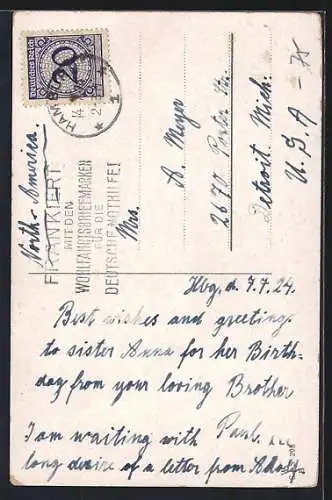 Deutsches Reich
20
HAMBURG
14
FRANKIERT
MIT DEN
WOHLFAHRTSBRIEFMARKEN
FÜR DIE
DEUTSCHE NOTHILFE!
North-America.
Mrs.
A. Meyer
2677 Porter Str.
Detroit Mich.
U. S. A
Hbg. d. 7.7.24.
Best wishes and greeting.
to sister Anna for her Birth-
day from your loving Brother
Paul.
I am waiting with
long desire of a letter from Adolf